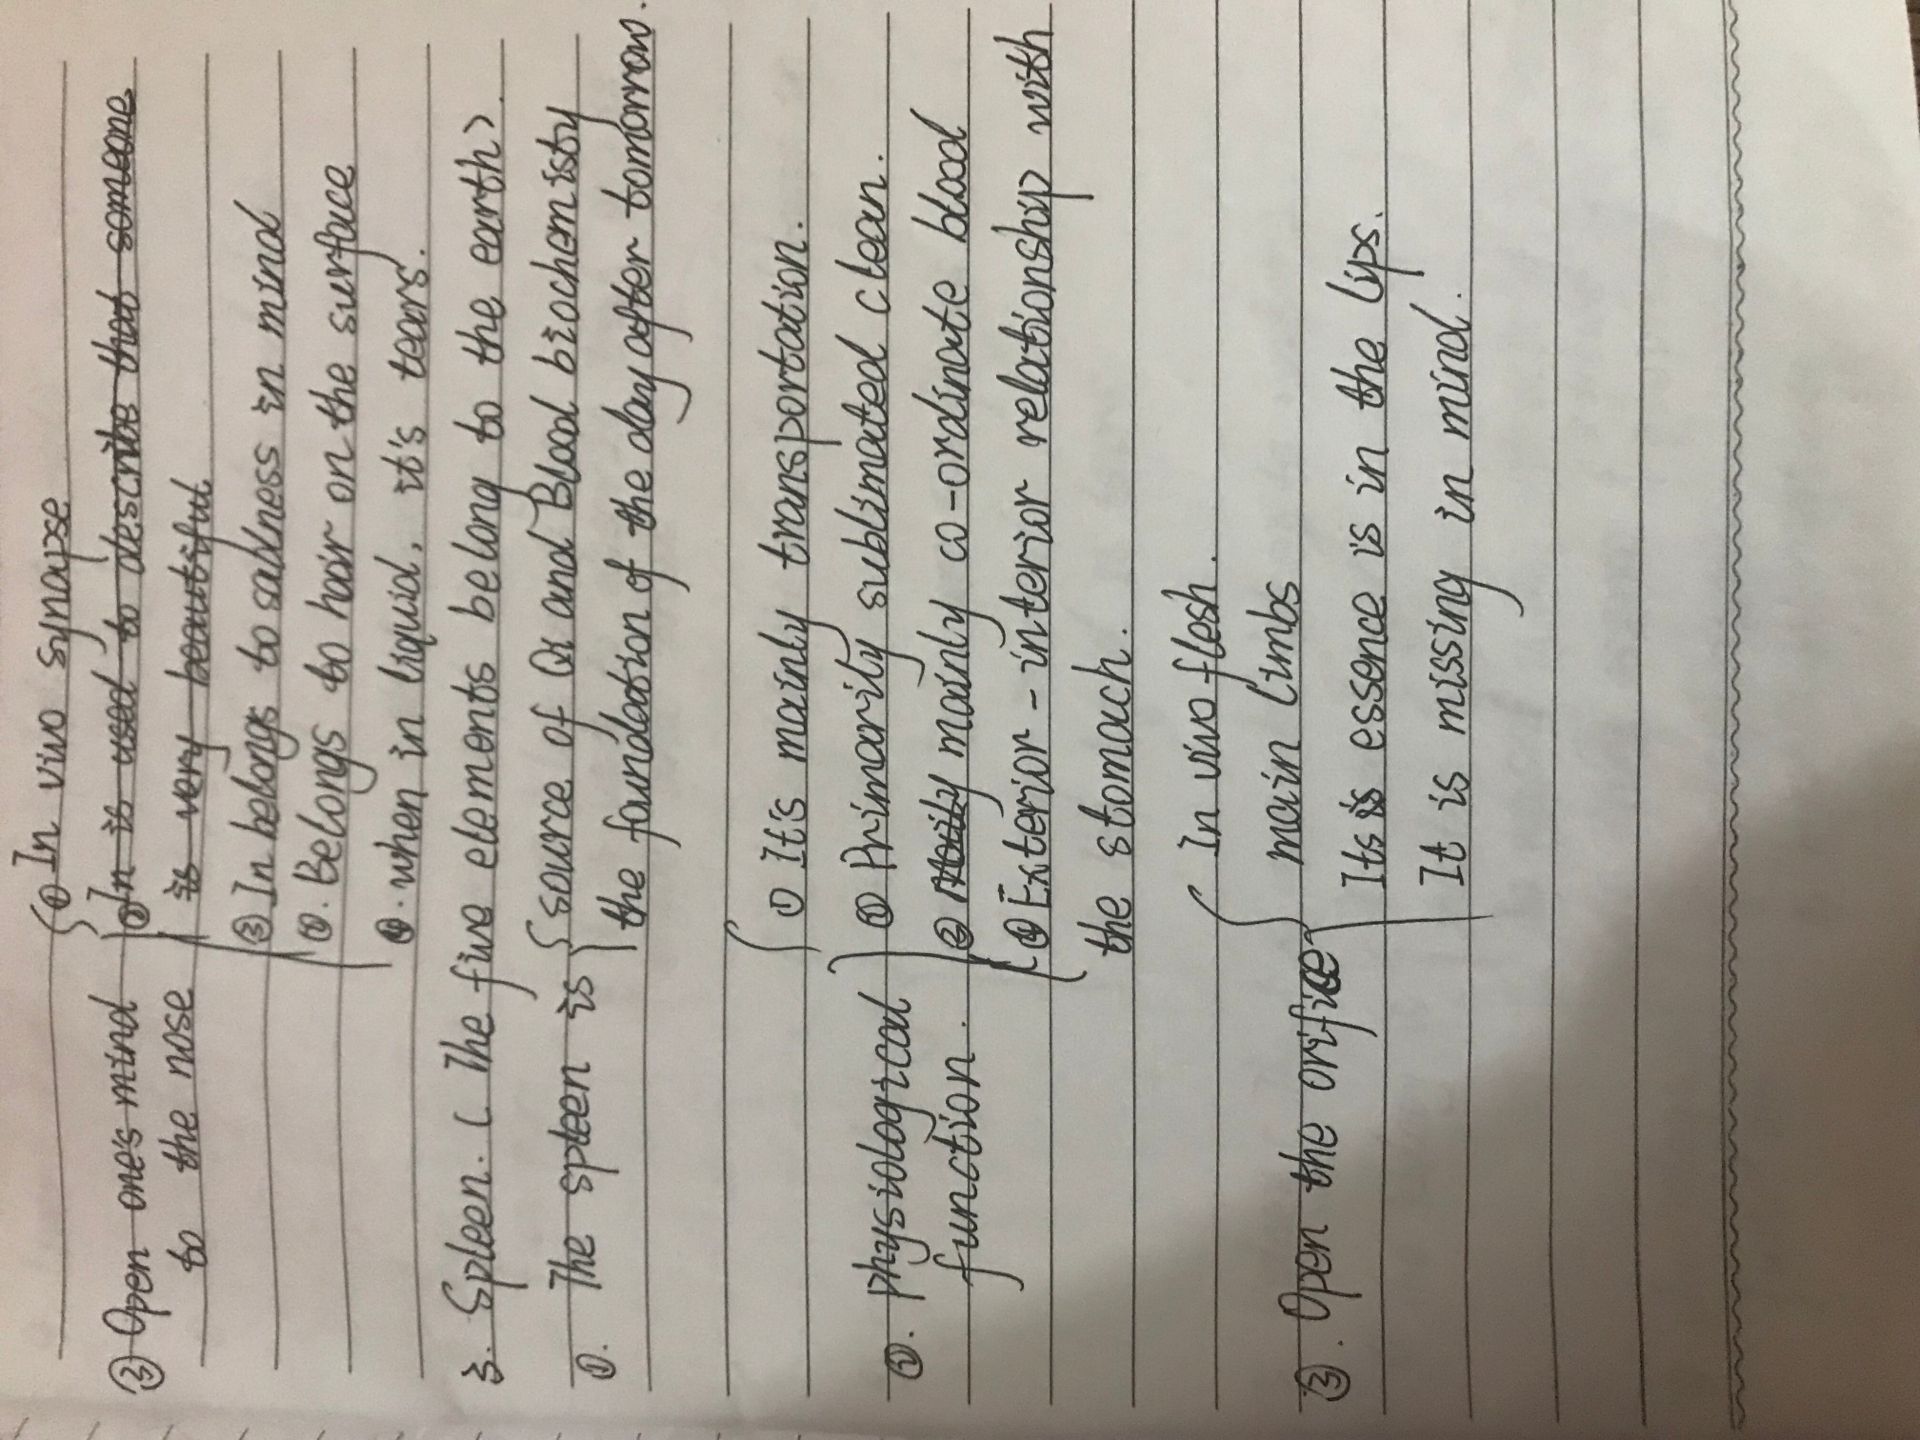 ① In vivo synapse
③ Open one's mind ② In is used to describe that someone
to the nose is very beautiful
③ In belongs to sadness in mind
②. Belongs to hair on the surface
④. when in liquid, it's tears.
3. Spleen. ( The five elements belong to the earth ) .
①. The spleen is source of Qi and Blood biochemisty
the foundation of the day after tomorrow.
① It's mainly transportation.
②. physiological ② Primarily sublimated clean.
function. ③ mainly co-ordinate blood
④ Exterior-interior relationship with
the stomach.
In vivo flesh.
main limbs
③. Open the orifice Its is essence is in the lips.
It is missing in mind.